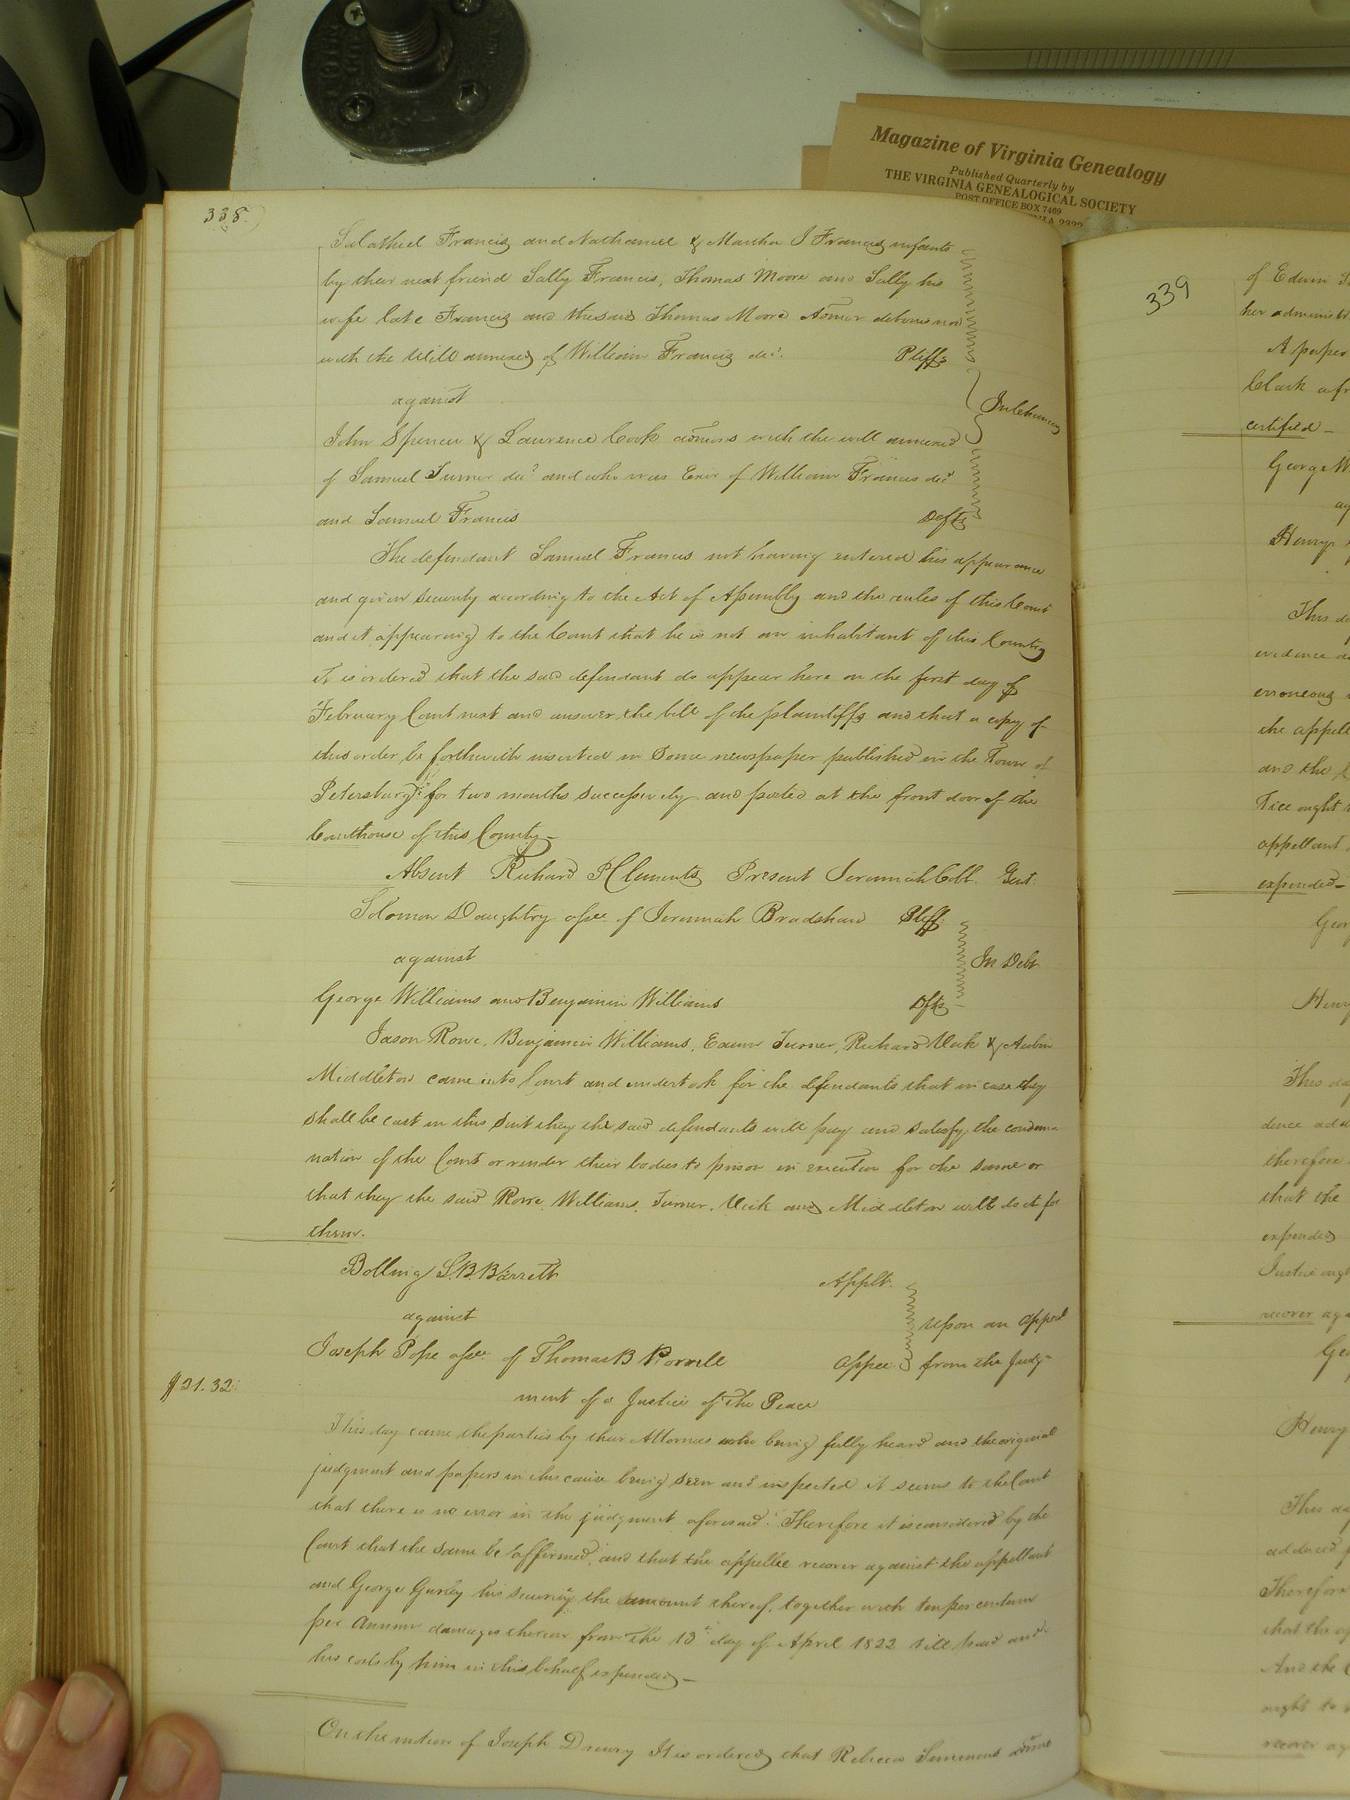 Magazine of Virginia Genealogy
Published Quarterly by
THE VIRGINIA GENEALOGICAL SOCIETY
POST OFFICE BOX 7469
338.
Salathiel Francis and Nathaniel & Martha J Francis infants
by their next friend Sally Francis, Thomas Moore and Sally his
wife late Francis and the said Thomas Moore Admr debonis non
with the Will annexed of William Francis decd. Pltffs
against
In Chancery
John Spencer & Lawrence Cook admrs with the will annexed
of Samuel Turner decd and who was Exor of William Francis decd
and Samuel Francis Defts
The defendant Samuel Francis not having entered his appearance
and given security according to the Act of Assembly and the rules of this Court
and it appearing to the Court that he is not an inhabitant of this Country
It is ordered that the said defendant do appear here on the first day of
February Court next and answer the bill of the plaintiffs and that a copy of
this order be forthwith inserted in some newspaper published in the Town of
Petersburg for two months successively and posted at the front door of the
Courthouse of this County
Absent Richard H Clements Present Jeremiah Cobb Gent.
Solomon Daughtry assee of Jeremiah Bradshaw Pltff.
against
In Debt
George Williams and Benjamin Williams Dfts
Jason Rowe, Benjamin Williams, Edwin Turner, Richard Meek &
Middleton came into Court and undertook for the defendants that in case they
shall be cast in this suit they the said defendants will pay and satisfy the condem-
nation of the Court or render their bodies to prison in execution for the same or
that they the said Rowe, Williams, Turner, Meek and Middleton will do it for
them.
Bolling S. B Barrett Applt.
against
upon an appeal
Joseph Pope assee of Thomas B Appee from the Judg-
$21.32
ment of a Justice of the Peace
This day came the parties by their Attornies who being fully heard and the original
judgment and papers in this cause being seen and inspected it seems to the Court
that there is no error in the judgment aforesaid. Therefore it is considered by the
Court that the same be affirmed, and that the appellee recover against the appellant
and George Gurley his security the amount thereof, together with ten per centum
per Annum damages thereon from the 13th day of April 1822 till paid and
his costs by him in this behalf expended—
On the motion of Joseph Drewry It is ordered that Rebecca Simmons admx
339
of Edwin
her administ
A paper
Clark
certified—
George W
ag
Henry
This da
evidence
erroneous
the appell
and the
tice ought
appellant
expended—
Geor
Henry
This da
dence add
therefore
that the
expended
Justice ought
recover aga
Ge
Henry
This da
adduced
Therefore
that the
And the
ought to
recover ag